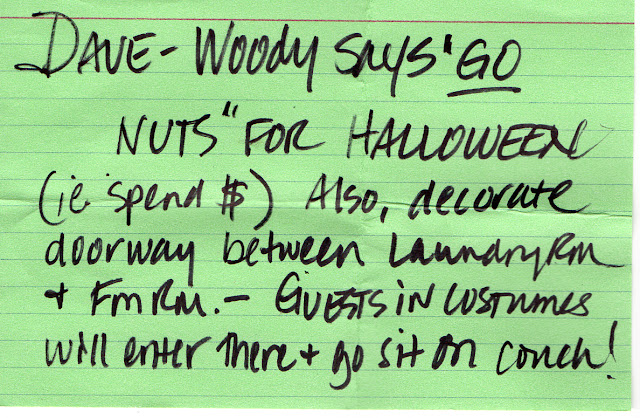 DAVE - Woody SAYS "GO
NUTS" FOR HALLOWEEN
(ie. spend $) Also, decorate
doorway between LaundryRm
+ FmRm. - GUESTS IN COSTUMES
will enter there + go sit on couch!